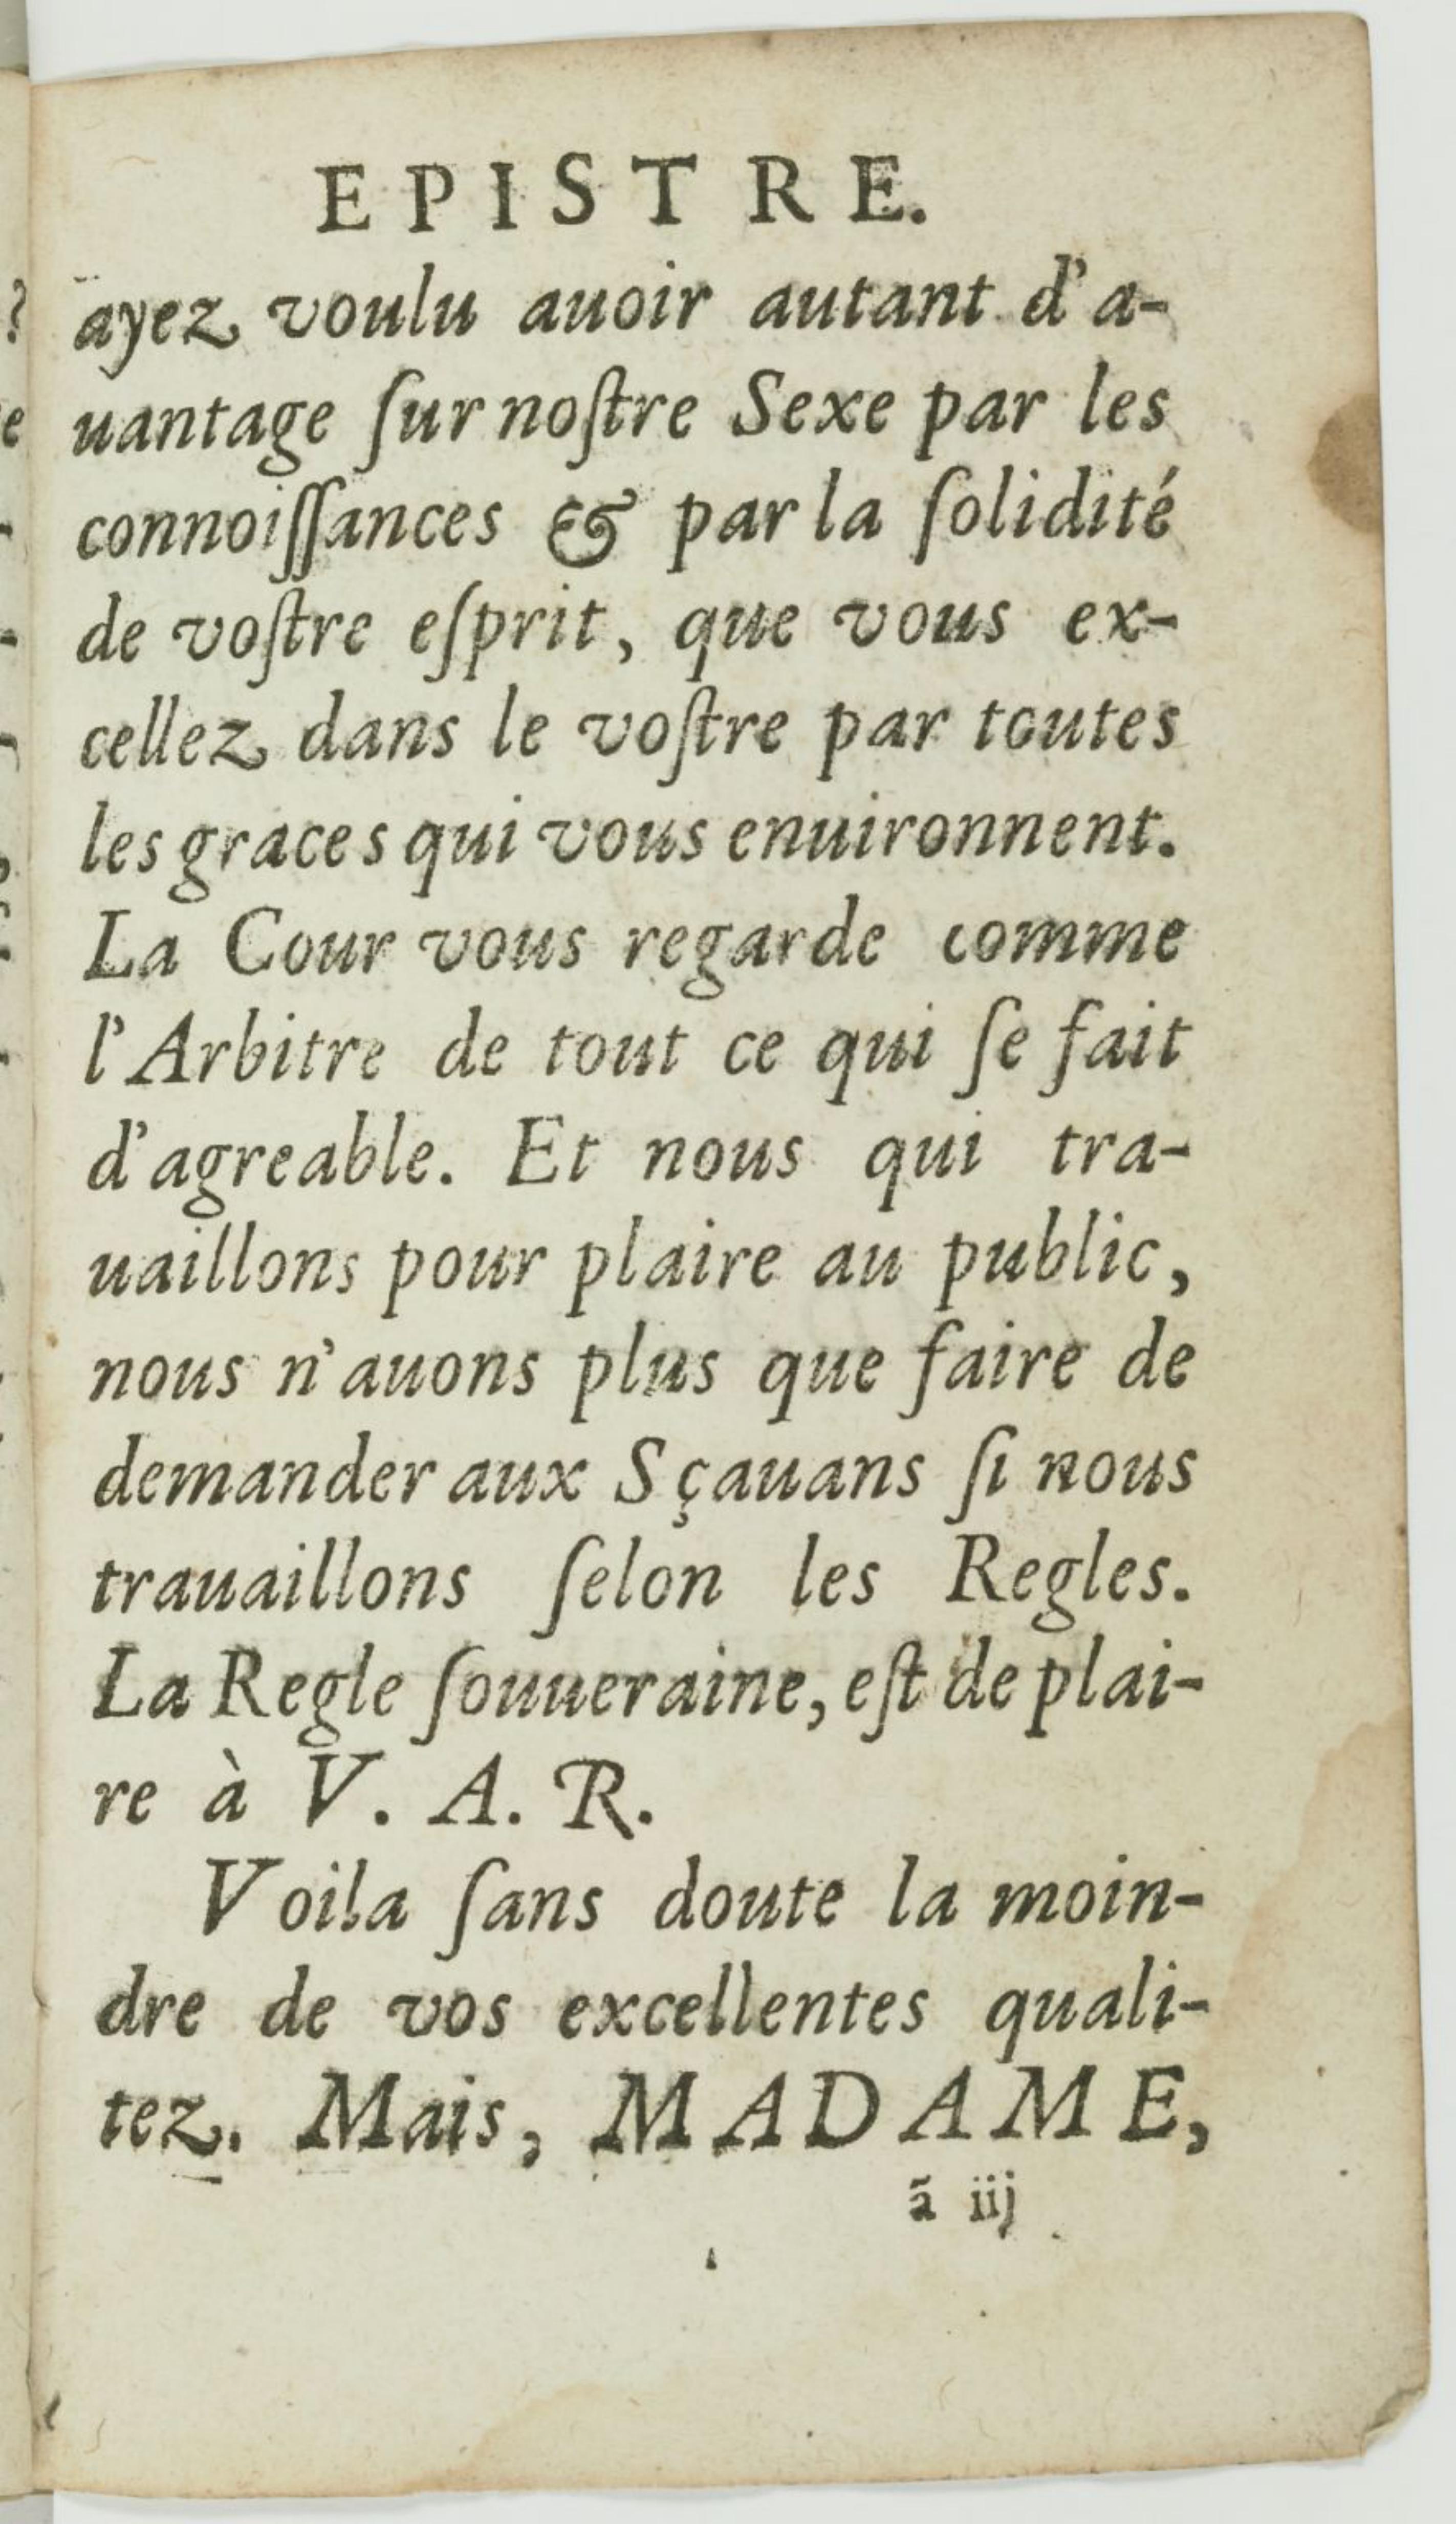 EPISTRE.
ayez voulu auoir autant d'a-
uantage ſur noſtre Sexe par les
connoiſſances & par la ſolidité
de voſtre eſprit, que vous ex-
cellez dans le voſtre par toutes
les graces qui vous enuironnent.
La Cour vous regarde comme
l'Arbitre de tout ce qui ſe fait
d'agreable. Et nous qui tra-
uaillons pour plaire au public,
nous n'auons plus que faire de
demander aux Sçauans ſi nous
trauaillons ſelon les Regles.
La Regle ſouueraine, eſt de plai-
re à V. A. R.
Voila ſans doute la moin-
dre de vos excellentes quali-
tez. Mais, MADAME,
ã iij